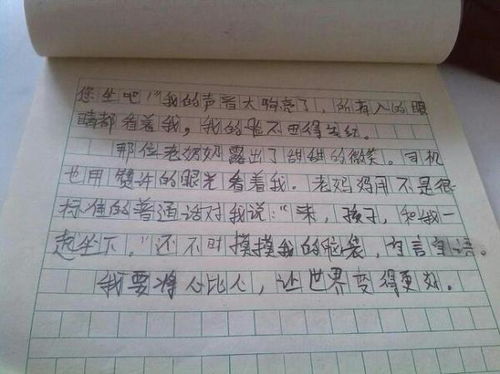 您坐吧！”我的声音太响亮了，所有人的眼
睛都看着我，我的脸不由得发红。
那位老奶奶露出了甜甜的微笑。司机
也用赞许的眼光看着我。老奶奶用不是很
标准的普通话对我说：“来，孩子，和我一
起坐下。”还不时摸摸我的脑袋，自言自语。
我要将心比心，让世界变得更好。